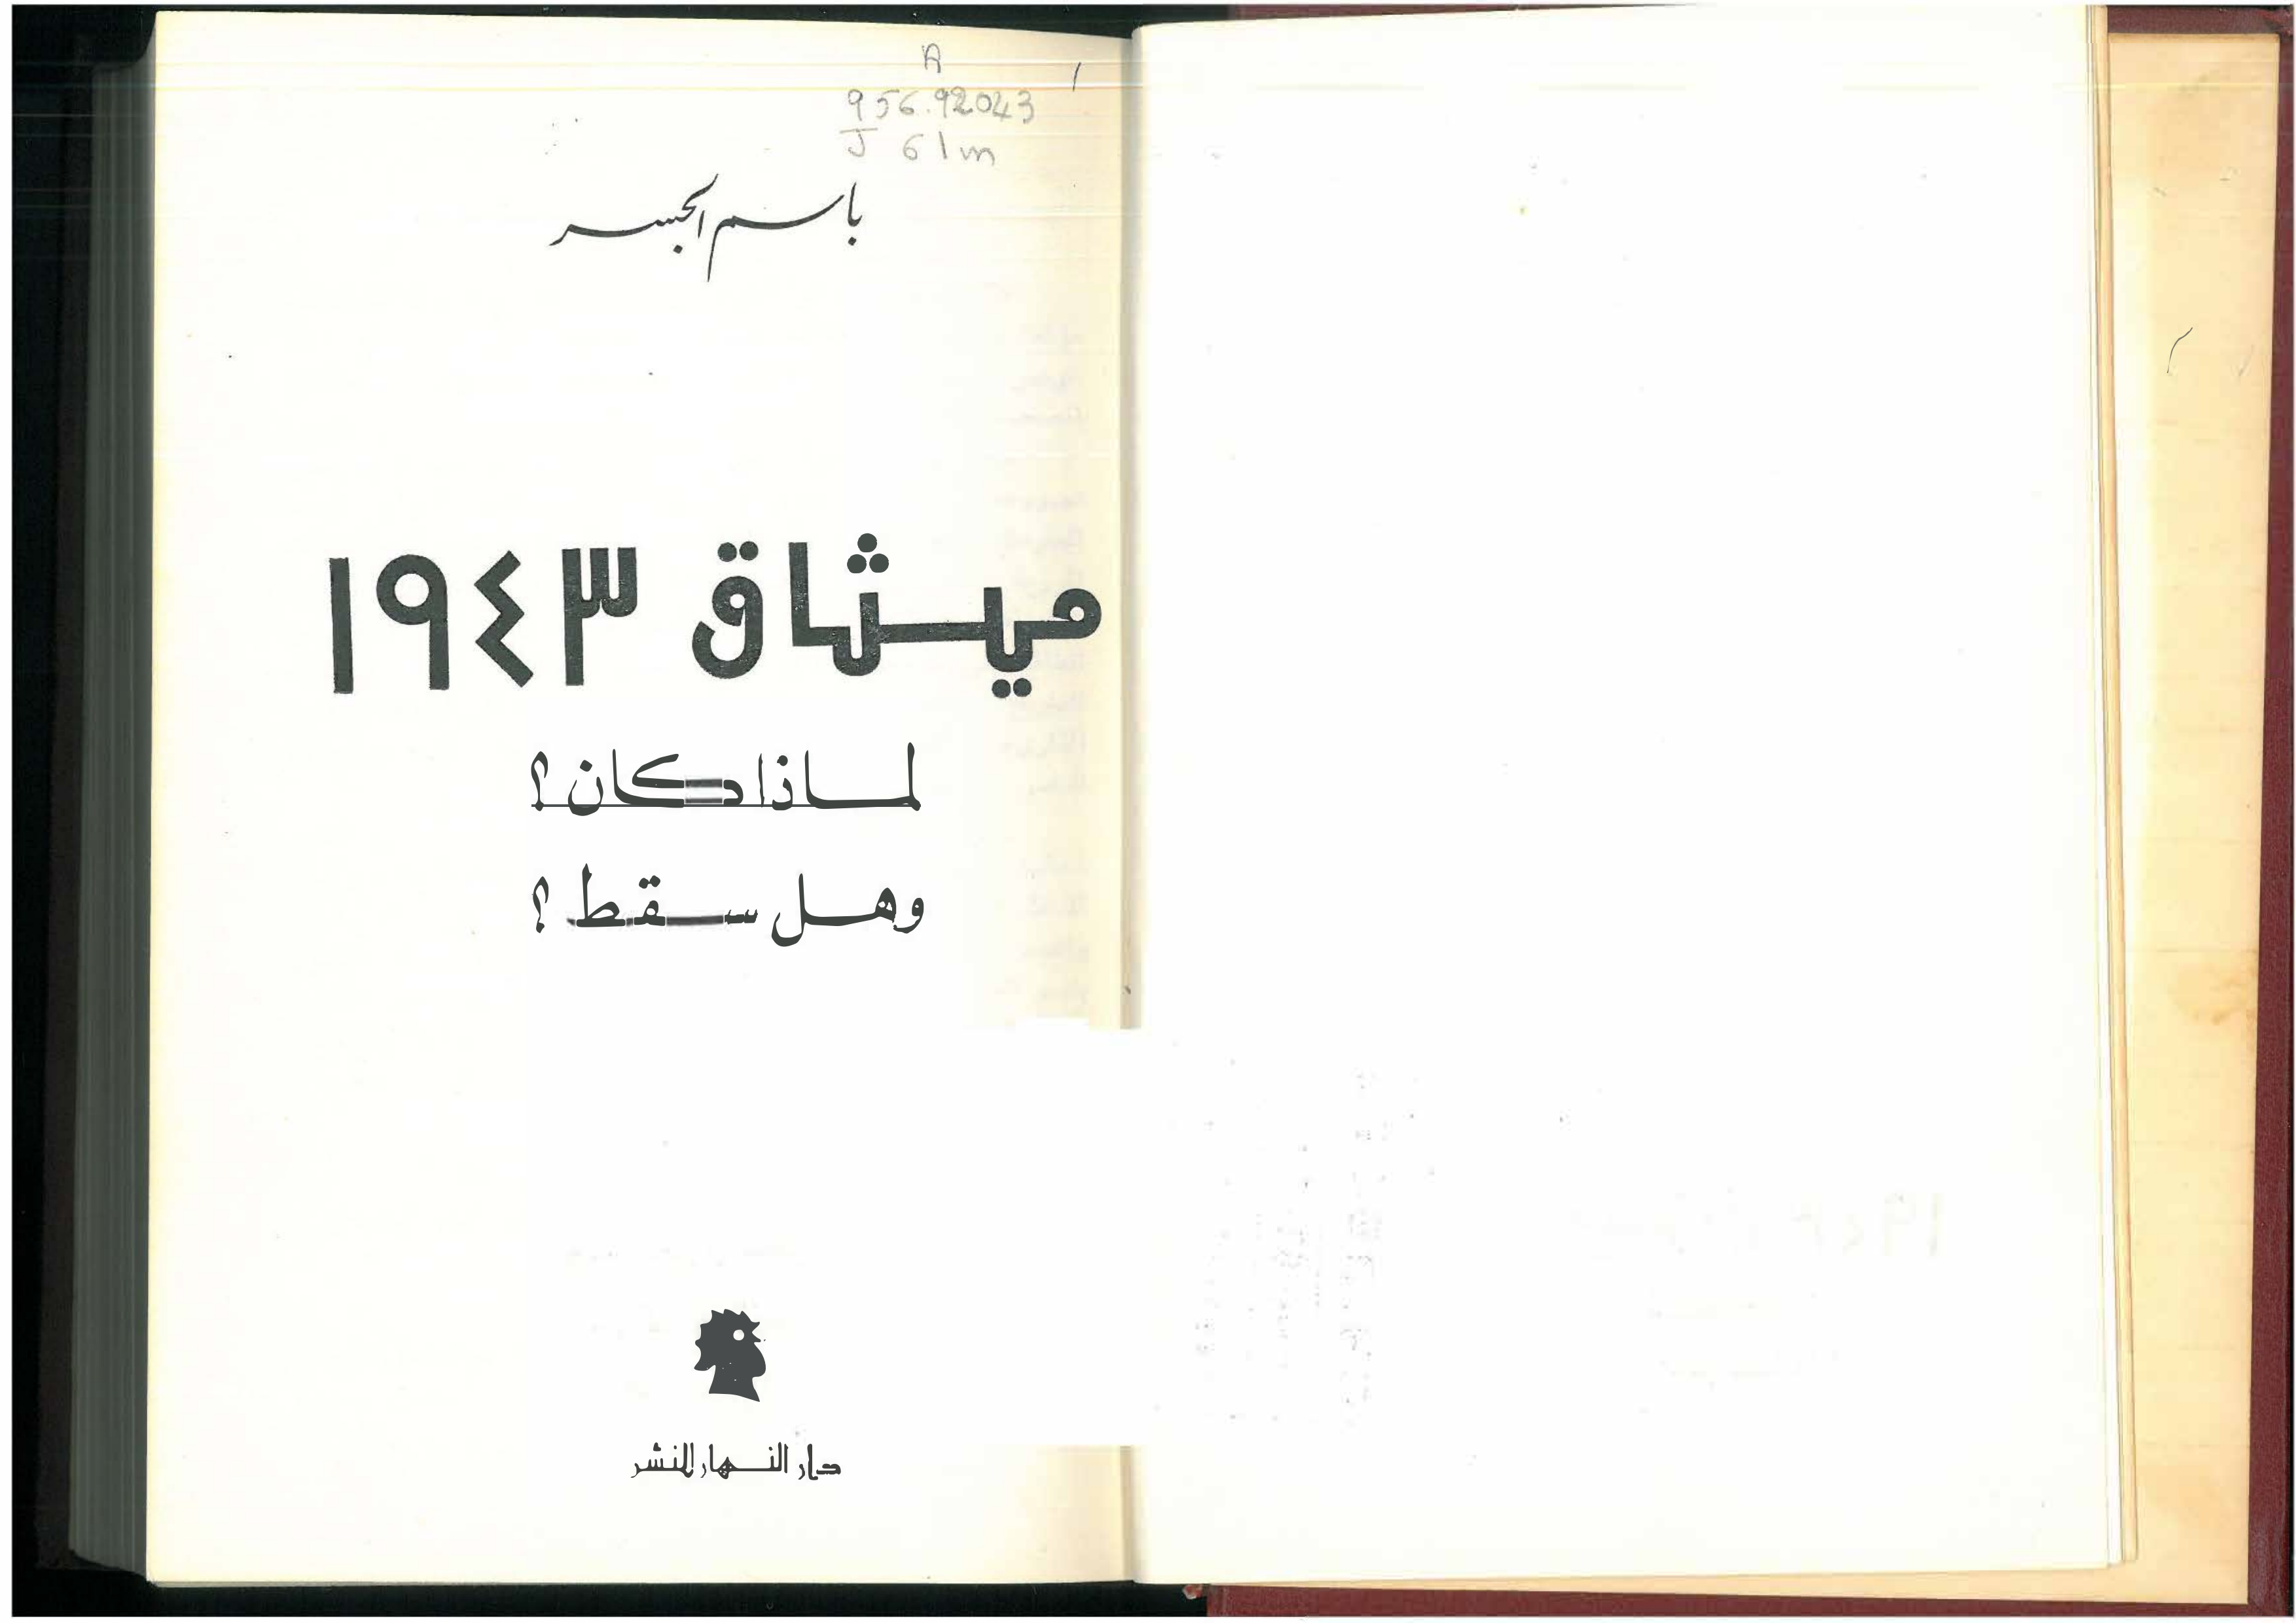 A
956.92043
J 61m
باسم الجسر
ميثاق ١٩٤٣
لماذا كان؟
وهل سقط؟
دار النهار للنشر